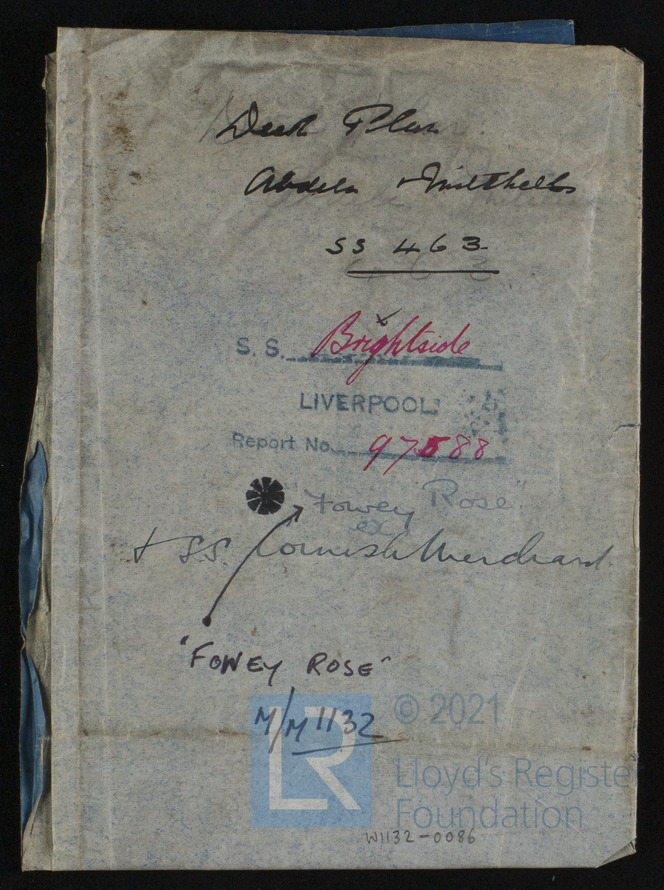 Deck Plan
Abdela & Mitchells
SS 463
S. S. Brightside
LIVERPOOL
Report No. 97588
"Fowey Rose"
ex
+ SS. Cornish Merchant
"FOWEY ROSE"
M/M 1132
© 2021
LR
Lloyd's Registe
Foundation
W1132-0086